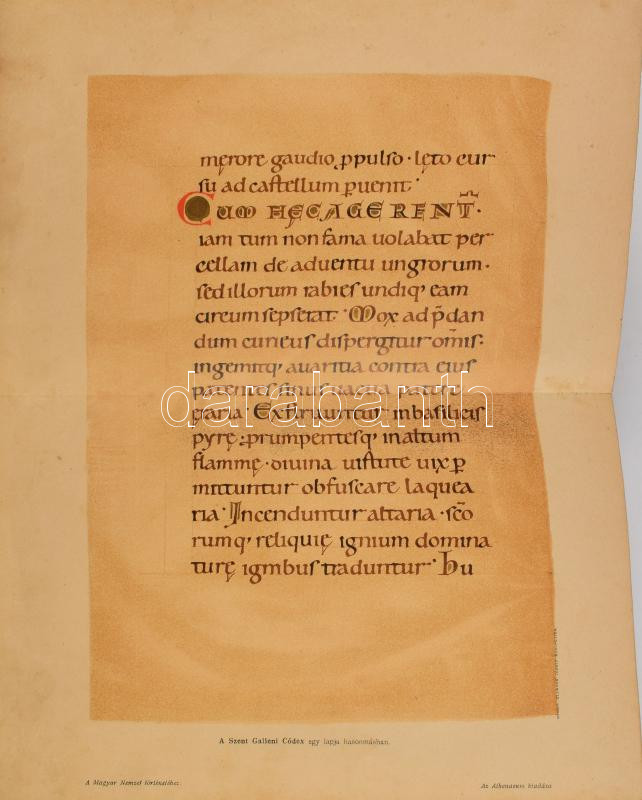 męrore gaudio ꝓpulso · lęto cur
su ad castellum ꝑuenit ·
Cum hęc agerent̄ ·
iam tum non fama uolabat per
cellam de aduentu ungrorum ·
sed illorum rabies undiq; eam
circumsepserat · Mox ad p̄dan
dum cuneus dispergitur om̄is ·
ingemitq; auaritia contra eius
patentes sinus uacua
Exstruuntur in basilicis
pyrę · prumpentesq; in altum
flammę · diuina uirtute uix ꝑ
mittuntur obfuscare laquea
ria · Incenduntur altaria · sc̄o
rumq; reliquię ignium domina
turę ignibus traduntur · Hu
darabanth
A Szent Galleni Códex egy lapja hasonmásban.
A Magyar Nemzet történetéhez.
Az Athenaeum kiadása